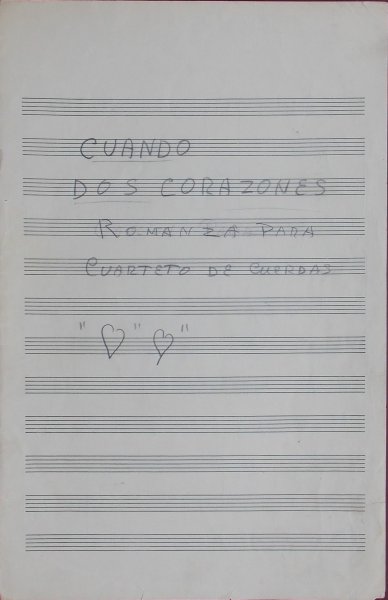 CUANDO
DOS CORAZONES
ROMANZA PARA
CUARTETO DE CUERDAS
"♡" ♡"